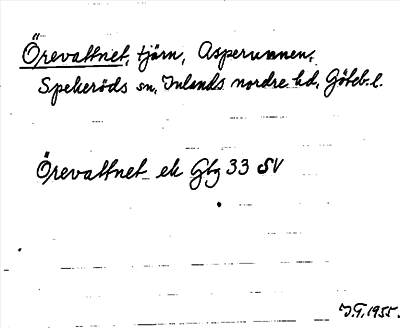 Örevattnet, tjärn, Asperunnen,
Spekeröds sn, Inlands nordre hd, Göteb. l.
Örevattnet ek Gbg 33 SV
J.G. 1955.